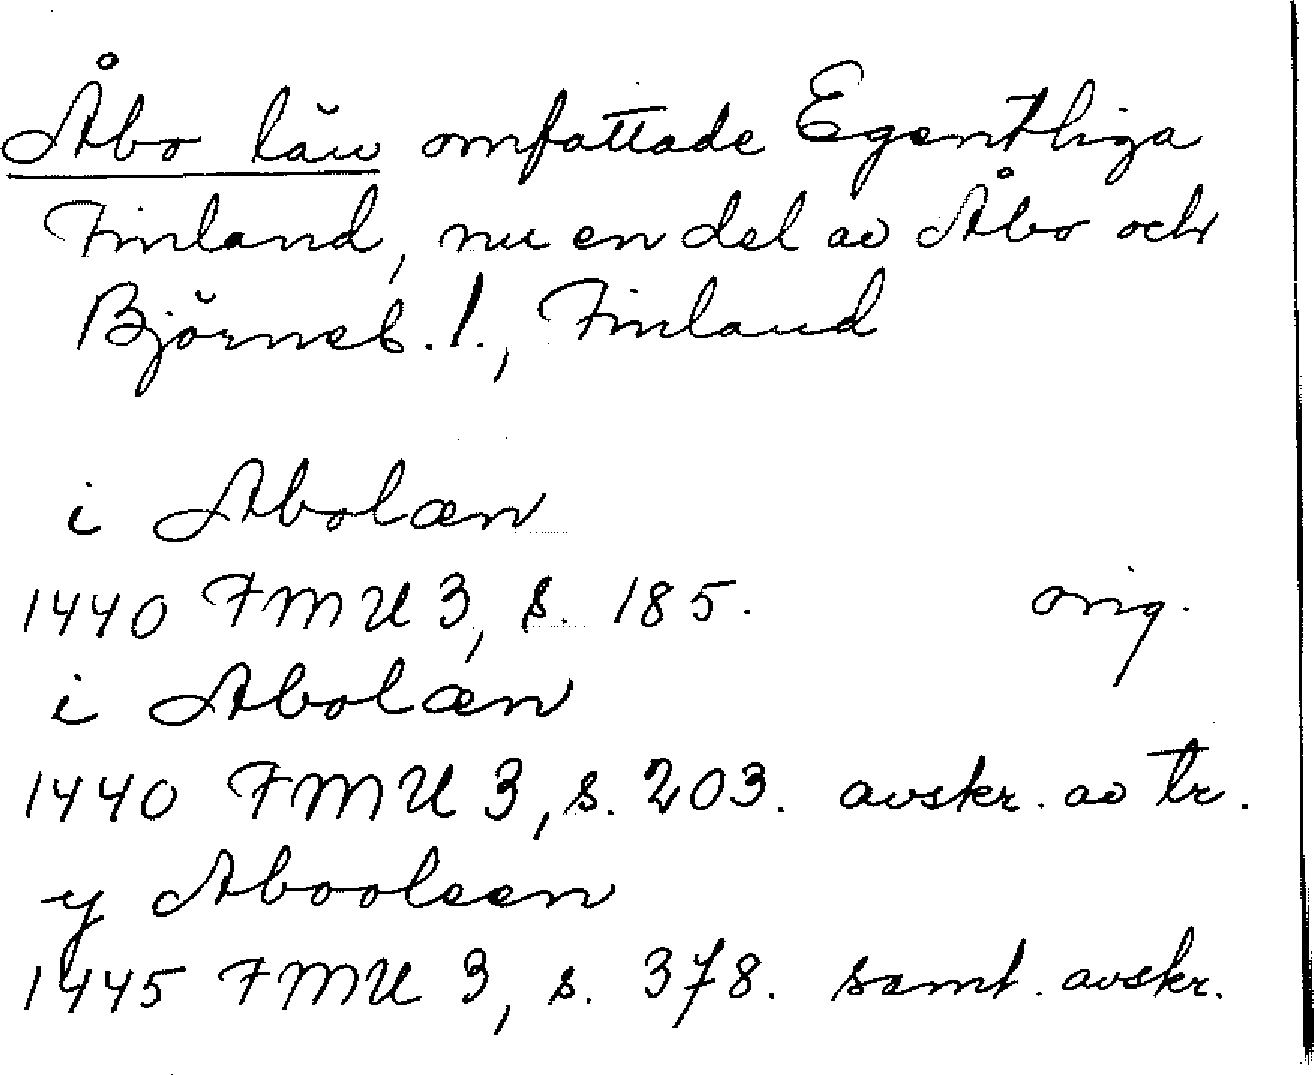 Åbo län omfattade Egentliga
Finland, nu en del av Åbo och
Björneb. l., Finland
i Abolæn
1440 FMU 3, s. 185. orig.
i Abolæn
1440 FMU 3, s. 203. avskr. av tr.
y Abooleen
1445 FMU 3, s. 378. samt. avskr.